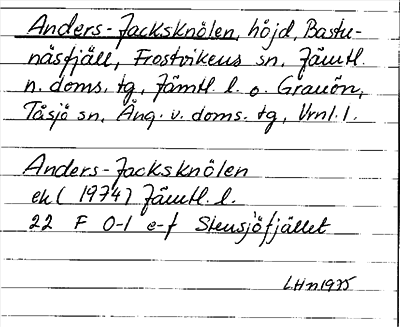 Anders-Jacksknölen, höjd, Bastu-
näsfjäll, Frostvikens sn, Jämtl.
n. doms. tg, Jämtl. l. o. Gråuön,
Tåsjö sn, Ång. v. doms. tg, Vrnl. l.
Anders-Jacksknölen
ek (1974) Jämtl. l.
22 F 0-1 e-f Stensjöfjället
LHn 1975